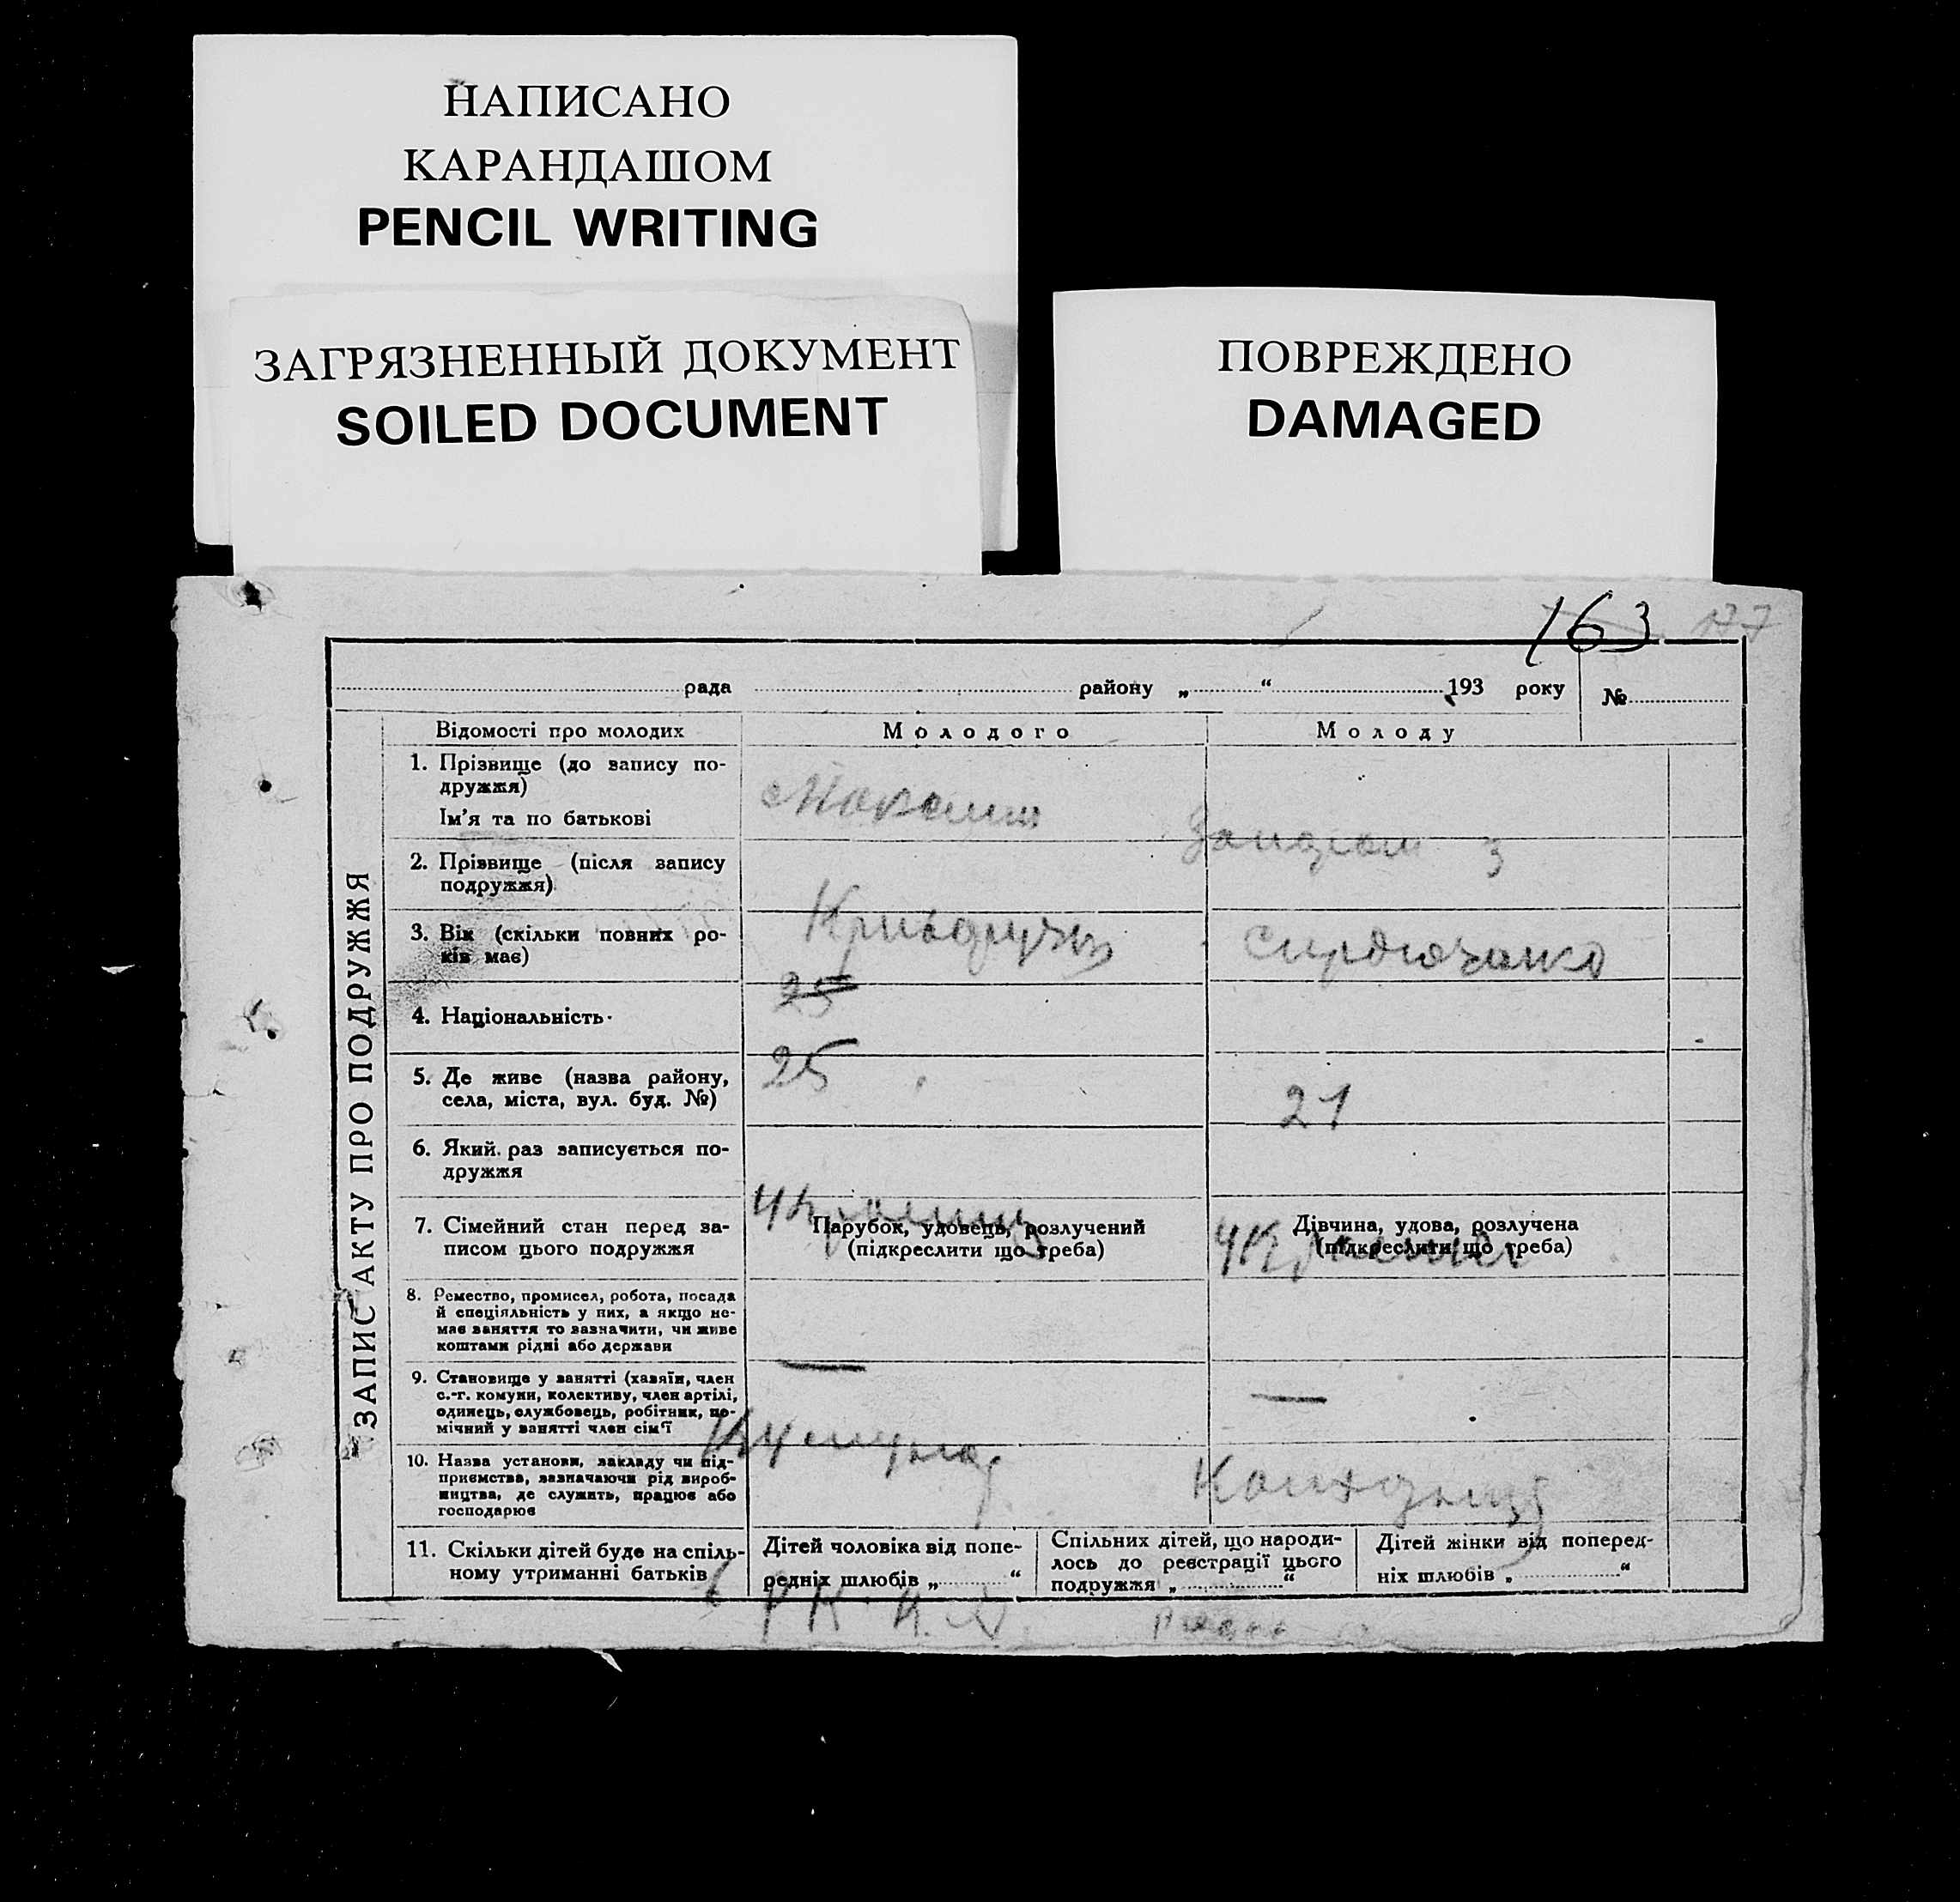 НАПИСАНО
КАРАНДАШОМ
PENCIL WRITING
ЗАГРЯЗНЕННЫЙ ДОКУМЕНТ
SOILED DOCUMENT
ПОВРЕЖДЕНО
DAMAGED
163 177
рада району „ “ 193 року №
ЗАПИС АКТУ ПРО ПОДРУЖЖЯ
Відомості про молодих
Молодого
Молоду
1. Прізвище (до запису по-
дружжя)
Ім'я та по батькові
2. Прізвище (після запису
подружжя)
3. Вік (скільки повних ро-
ків має)
Сирдюченко
25
4. Національність
25
5. Де живе (назва району,
села, міста, вул. буд. №)
21
6. Який раз записується по-
дружжя
7. Сімейний стан перед за-
писом цього подружжя
Парубок, удовець, розлучений
(підкреслити що треба)
Дівчина, удова, розлучена
(підкреслити що треба)
8. Ремество, промисел, робота, посада
й спеціяльність у них, а якщо не-
має заняття то зазначити, чи живе
коштами рідні або держави
—
9. Становище у занятті (хазяїн, член
с.-г. комуни, колективу, член артілі,
одинець, службовець, робітник, по-
мічний у занятті член сім'ї
—
10. Назва установи, закладу чи під-
приємства, зазначаючи рід вироб-
ництва, де служить, працює або
господарює
11. Скільки дітей буде на спіль-
ному утриманні батьків
Дітей чоловіка від попе-
редніх шлюбів „ “
Спільних дітей, що народи-
лось до реєстрації цього
подружжя „ “
Дітей жінки від поперед-
ніх шлюбів „ “